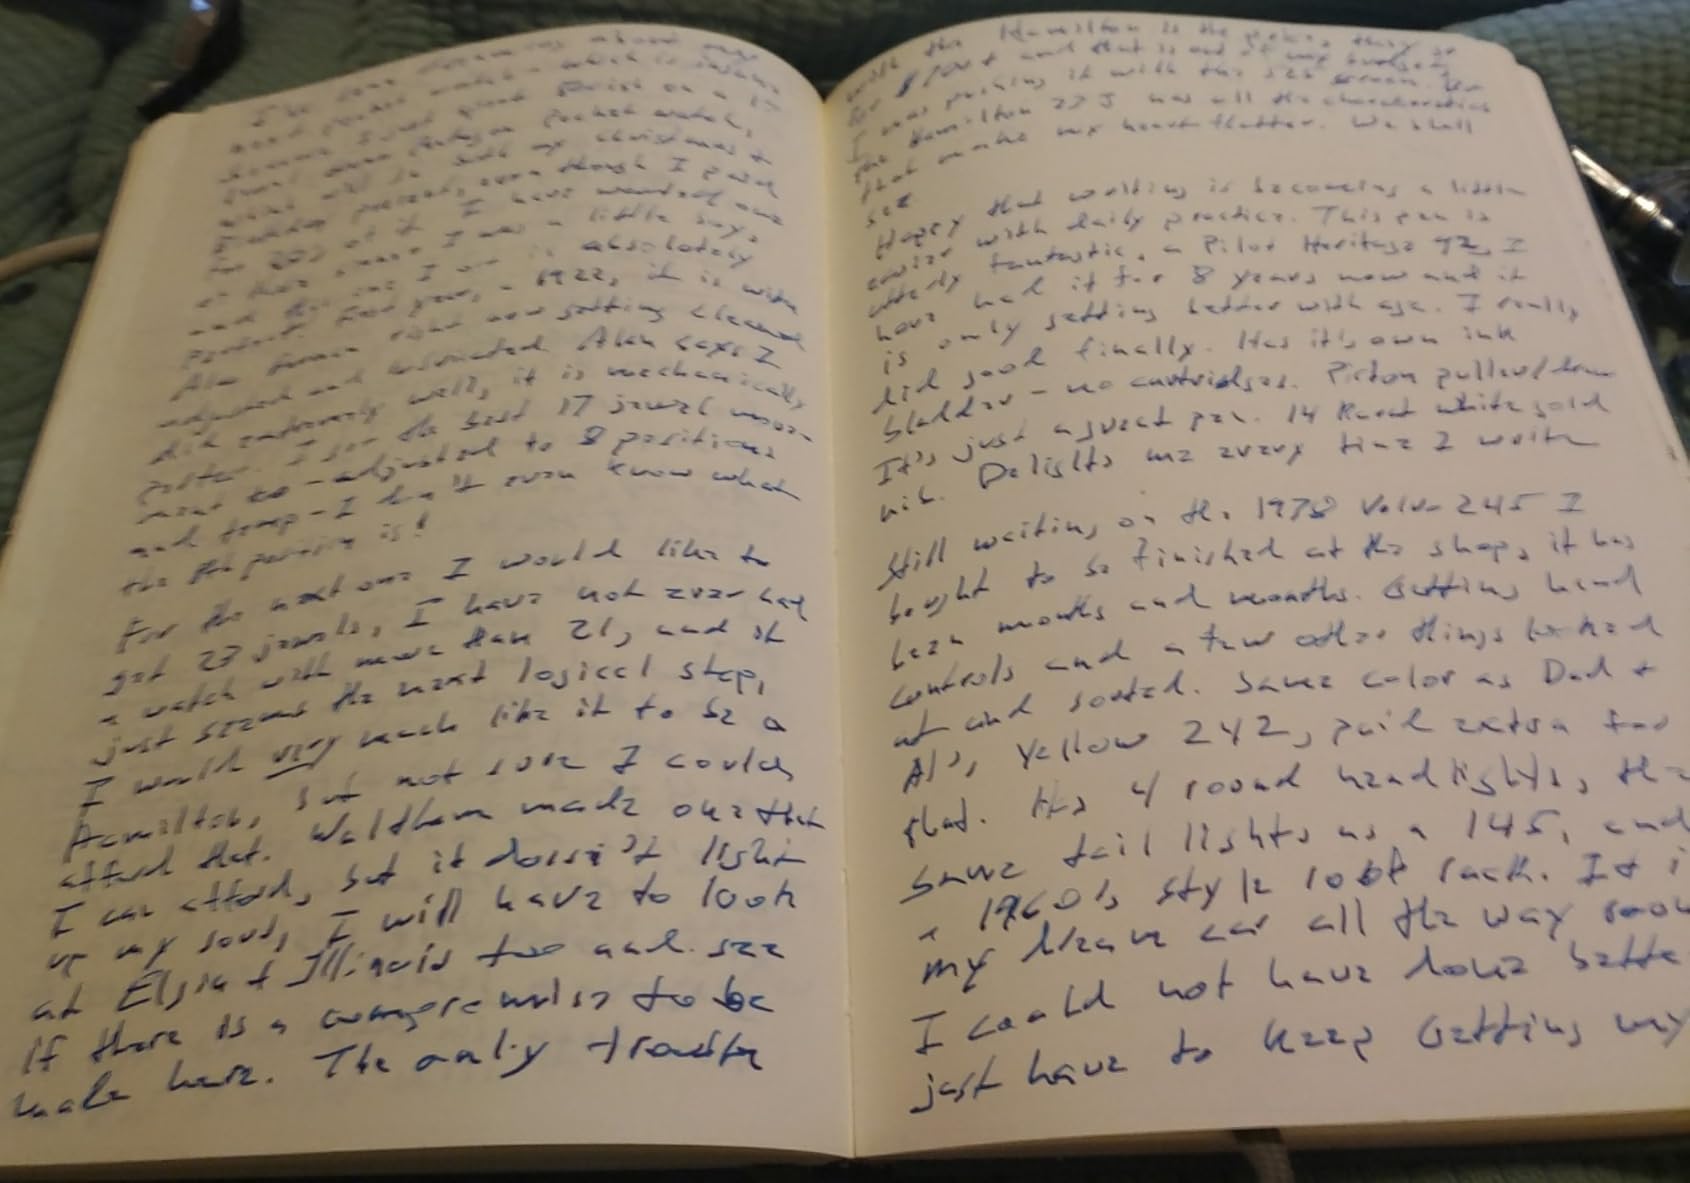 I've been dreaming about my
next pocket watch - which is insane
because I just good on a 17
jewel pocket watch,
which will be both my Christmas &
Birthday present, even though I paid
for of it. I have wanted one
of these since I was a little boy,
and this one I am is absolutely
perfect. first year, 1922, it is with
Alan right now getting cleaned
adjusted and lubricated. Alan says I
did extremely well, it is mechanically
perfect. I the best 17 jewel move-
ment - adjusted to 8 positions
and temp - I don't even know what
the 8th position is!
For the next one I would like to
get 23 jewels, I have not ever had
a watch with more than 21, and it
just seems the next logical step,
I would very much like it to be a
Hamilton, but not sure I could
afford that. Waltham made one that
I can afford, but it doesn't light
up my soul, I will have to look
at Elgin & Illinois too and see
if there is a compromise to be
made here. The only trouble
with the Hamilton is the price, they go
for and that is out of my budget,
I was pushing it with the
the Hamilton 23 J has all the characteristics
that make my heart flutter. We shall
see.
Happy that writing is becoming a little
easier with daily practice. This pen is
utterly fantastic, a Pilot Heritage 92, I
have had it for 8 years now and it
is only getting better with age. I really
did good finally. Has it's own ink
bladder - no cartridges. Piston puller/
It's just a great pen. 14 Karat white gold
nib. Delights me every time I write
Still waiting on the 1978 Volvo 245 I
bought to be finished at the shop, it has
been months and months. Getting hand
controls and a few other things looked
at and sorted. Same color as Dad &
Al's, Yellow 242, paid extra for
that. Has 4 round headlights, the
same tail lights as a 145, and
a 1960's style roof rack. It i
my dream car all the way
I could not have done bette
just have to keep getting my